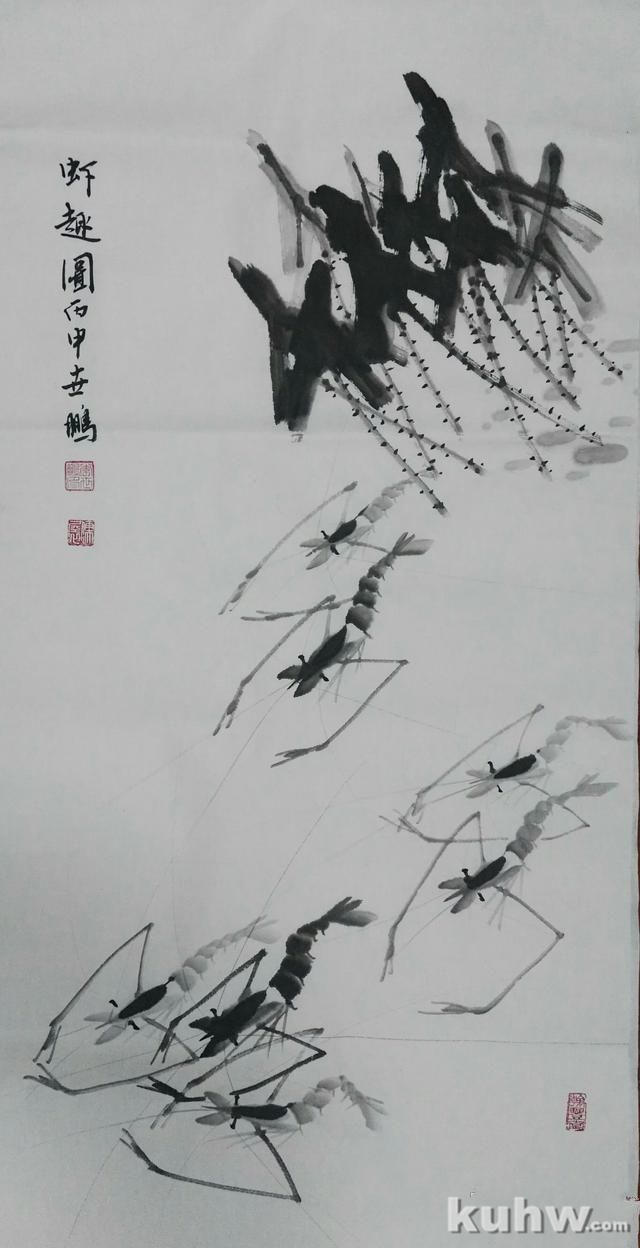 虾趣圖丙申世鵬
kuhw.com